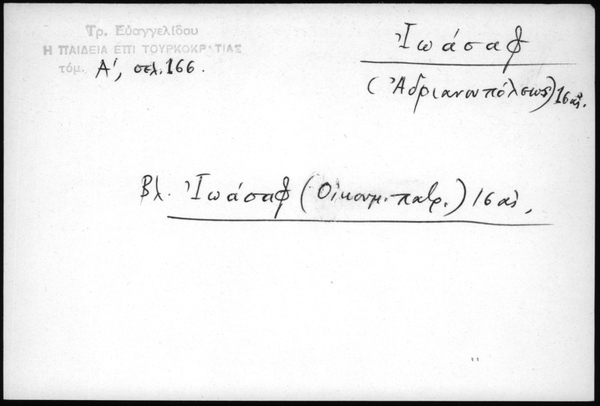 Τρ. Εὐαγγελίδου
Η ΠΑΙΔΕΙΑ ΕΠΙ ΤΟΥΡΚΟΚΡΑΤΙΑΣ
τόμ. Α', σελ. 166.
Ἰωάσαφ
(Ἀδριανουπόλεως) 16 αἰ.
Βλ. Ἰωάσαφ (Οἰκουμ. πατρ.) 16 αἰ,